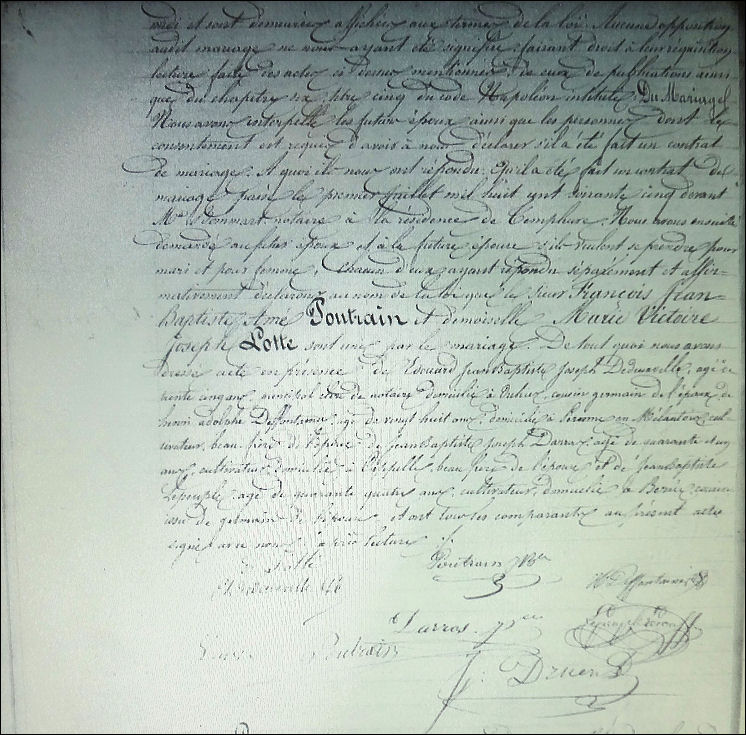 midi et sont demeurées affichées aux termes de la loi. Aucune opposition
audit mariage ne nous ayant été signifiée, faisant droit à leur réquisition
lecture faite des actes ci dessus mentionnés, de ceux de publications ainsi
que du chapitre six, titre cinq du code Napoléon intitulé, Du Mariage.
Nous avons interpellé les futurs époux ainsi que les personnes dont le
consentement est requis d'avoir à nous déclarer s'il a été fait un contrat
de mariage. A quoi ils nous ont répondu: Qu'il a été fait un contrat de
mariage passé le premier juillet mil huit cent soixante cinq devant
Me notaire à la résidence de Templeuve. Nous avons ensuite
demandé au futur époux et à la future épouse s'ils veulent se prendre pour
mari et pour femme, chacun d'eux ayant répondu séparément et affir-
mativement déclarons, au nom de la loi que le sieur François Jean-
Baptiste Amé Poutrain et demoiselle Marie Victoire
Joseph Lotte sont unis par le mariage. De tout quoi nous avons
dressé acte en présence de Edouard Jean Baptiste Joseph agé de
trente cinq ans, principal clerc de notaire domicilié à cousin germain de l'époux, de
henri adolphe Deffontaines, agé de vingt huit ans, domicilié à Péronne en Mélantois, cul-
tivateur, beau frère de l'époux, de Jean Baptiste Joseph Darras, agé de quarante et un
ans, cultivateur, domicilié à Cappelle, beau frère de l'épouse et de Jean Baptiste
Lepeuple, agé de quarante quatre ans, cultivateur, domicilié à Bersée, cousin
issu de germain de l'épouse, et ont tous les comparants au présent acte
signé avec nous, après lecture.
Lotte
Poutrain
Deffontaines
Darras
Lepeuple
Poutrain
Druen